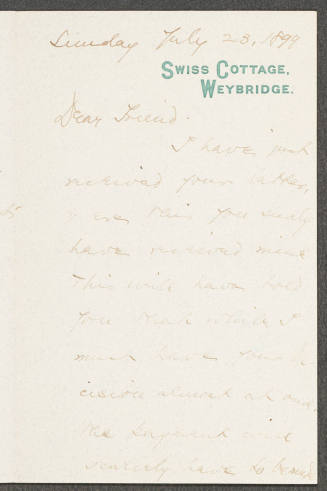 Sunday July 23, 1899
SWISS COTTAGE,
WEYBRIDGE.
Dear Friend.
I have just
received your letter,
ere this you
have received mine
This will have told
you that while I
must have your de
cision almost at once.
the payment will
scarcely have to be made